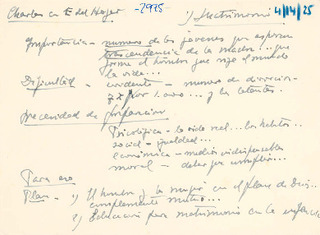 Charlas en E del Hogar -2975 1) Matrimonio 4/14/25
Importancia - numero de los jovenes que esperan
trascendencia de la madre... que
forma el hombre que rige el mundo
la vida...
Dificultad - evidente - numero de divorcios -
por 1.000... y los latentes.
necesidad de preparacion
Psicológica - la vida real... los habitos..
social - igualdad...
economica - medios indispensables
moral - deber que cumplir...
Para eso
Plan - 1) El hombre y la mujer en el plan de Dios..
complemento mutuo...
2) Educacion para matrimonio en la infancia